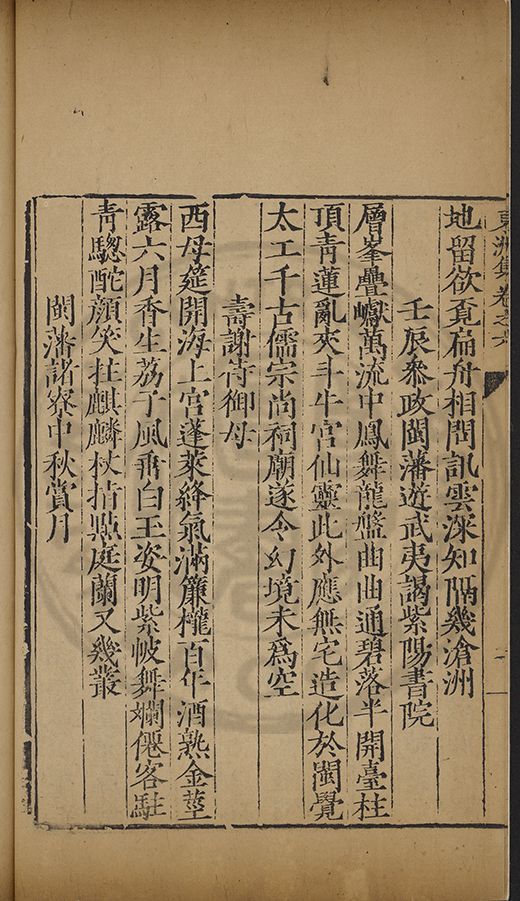 東洲集卷之六
地留欲覔扁舟相問訊雲深知隔幾滄洲
壬辰叅政閩藩遊武夷謁紫陽書院
層峯疊巘萬流中鳳舞龍盤曲曲通碧落半開臺柱
頂青蓮亂夾斗牛宮仙靈此外應無宅造化於閩覺
太工千古儒宗尚祠廟遂令幻境未爲空
壽謝侍御母
西母筵開海上宮蓬萊絳氣滿簾櫳百年酒熟金莖
露六月香生荔子風垂白玉姿明紫帔舞斕僊客駐
青驄酡顔笑拄麒麟杖指點庭蘭又幾叢
閩藩諸寮中秋賞月